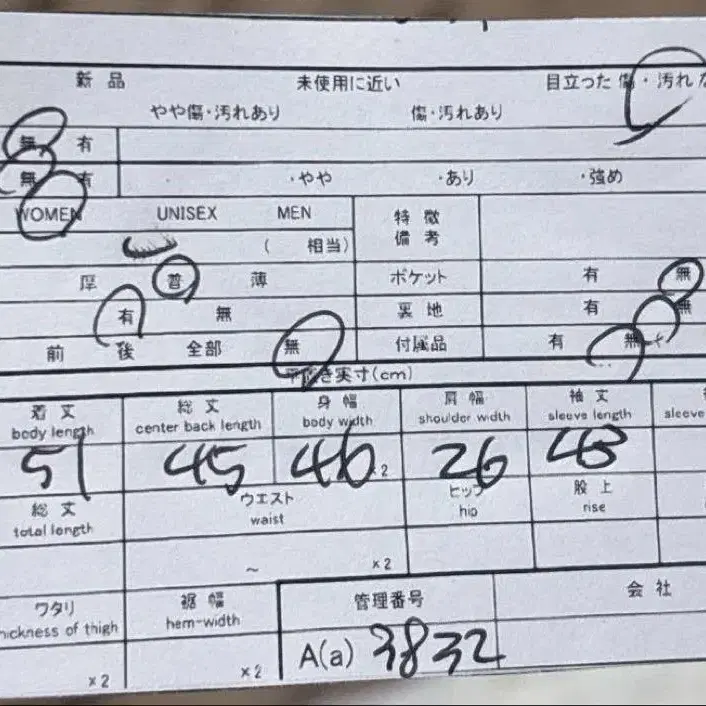 新品 未使用に近い 目立った傷・汚れな
やや傷・汚れあり 傷・汚れあり
無 有
無 有 ・やや ・あり ・強め
WOMEN UNISEX MEN 特徴
備考
( 相当)
厚 普 薄 ポケット 有 無
有 無 裏地 有 無
前 後 全部 無 付属品 有 無
平置き実寸(cm)
着丈 総丈 身幅 肩幅 袖丈
body length center back length body width shoulder width sleeve length sleeve
51 45 46 ×2 26 48
総丈 ウエスト ヒップ 股上
total length waist hip rise
~ ×2
ワタリ 裾幅 管理番号 会社
hickness of thigh hem-width
×2 ×2 A(a) 3832